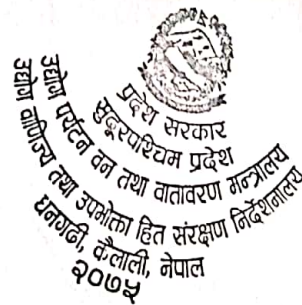 प्रदेश सरकार
सुदूरपश्चिम प्रदेश
उद्योग पर्यटन वन तथा वातावरण मन्त्रालय
उद्योग वाणिज्य तथा उपभोक्ता हित संरक्षण निर्देशनालय
धनगढी, कैलाली, नेपाल
२०७५